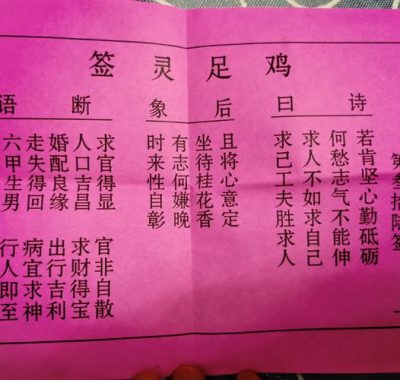 鸡足灵签
第叁拾陆签
诗曰
若肯坚心勤砥砺
何愁志气不能伸
求人不如求自己
求己工夫胜求人
后象
且将心意定
坐待桂花香
有志何嫌晚
时来性自彰
断语
求官得显 官非自散
人口吉昌 求财得宝
婚配良缘 出行吉利
走失得回 病宜求神
六甲生男 行人即至